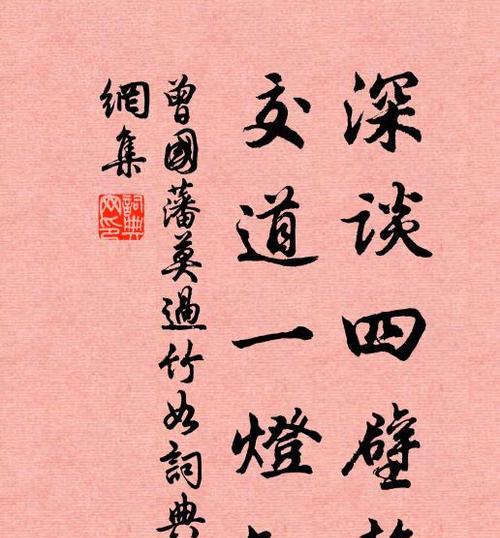 深谈四壁
交道一燈
曾國藩莫過竹如詞典
網集
詞典網印